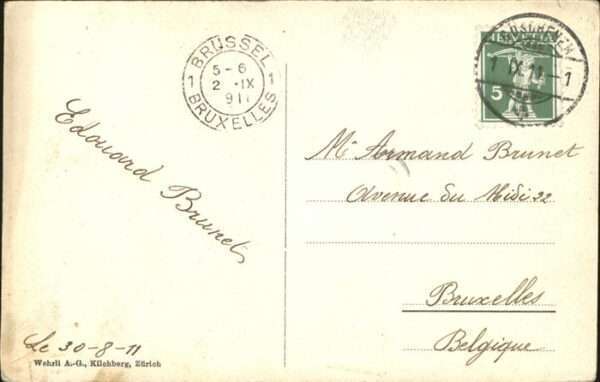 BRUSSEL
1 5-6 1
2 IX
911
BRUXELLES
HELVETIA
1 IX 11 - 1
5
Edouard Brunet
Mr Armand Brunet
Avenue du Midi 22
Bruxelles
Belgique
Le 30-8-11
Wehrli A.-G., Kilchberg, Zürich